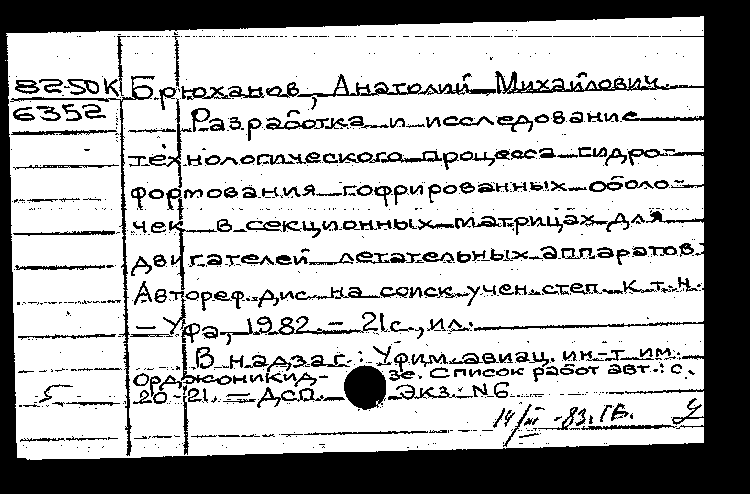 82-50К Брюханов, Анатолий Михайлович.
6352 Разработка и исследование
технологического процесса гидро-
формования гофрированных оболо-
чек в секционных матрицах для
двигателей летательных аппаратов:
Автореф. дис. на соиск. учен. степ. к. т. н.
— Уфа, 1982. — 21 с., ил.
В надзаг.: Уфим. авиац. ин-т им.
Орджоникид- зе. Список работ авт.: с.
20-21. — ДСП. Экз. N6
14/III -83.